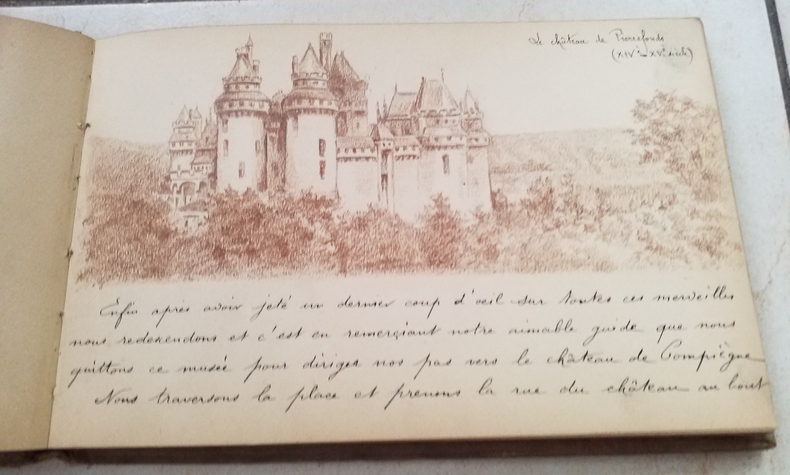 Le château de Pierrefonds
(XIVe - XVe siècle)
Enfin après avoir jeté un dernier coup d'oeil sur toutes ces merveilles
nous redescendons et c'est en remerciant notre aimable guide que nous
quittons ce musée pour diriger nos pas vers le château de Compiègne
Nous traversons la place et prenons la rue du château au bout